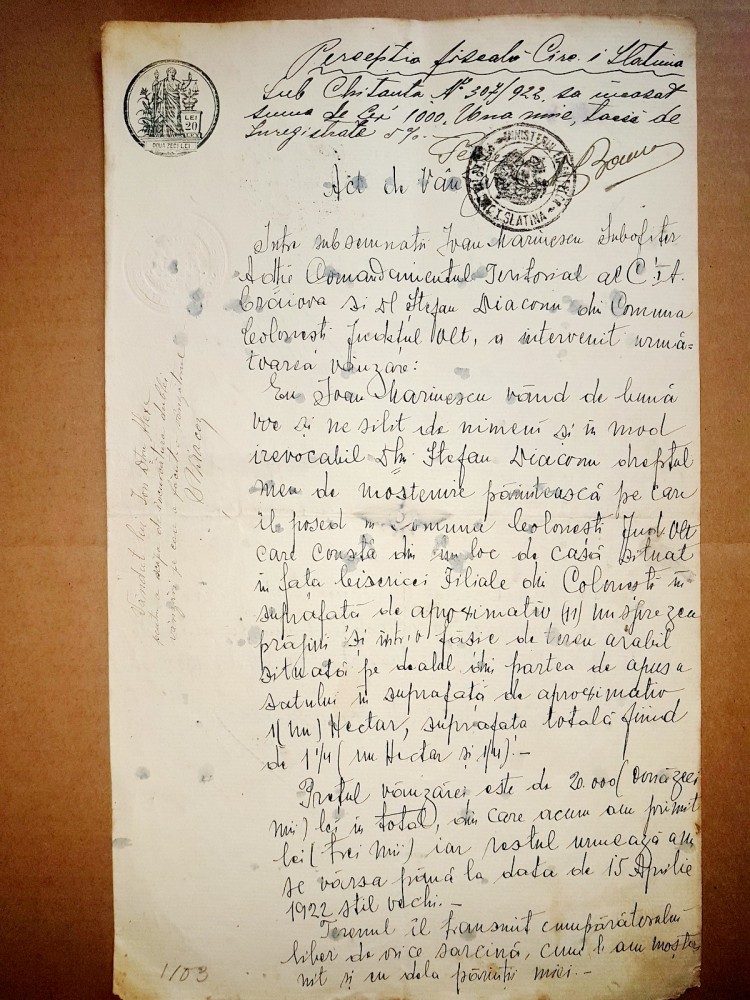 Percepția fiscală Circ. I Slatina
Sub Chitanța Nº 307/922 sa încasat
suma de Lei 1000, Una mie, taxe de
Înregistrate 5%.-
LEI
20
DOUĂZECI LEI
MINISTERUL
SLATINA
Act de Vân
Între subsemnatii Ioan Marinescu Subofițer
Comandamentul Teritorial al C. I A.
Craiova și Dl Ștefan Diaconu din Comuna
Colonești Județul Olt, a intervenit urmă=
toarea vânzare:
Eu Ioan Marinescu vând de bună
voe și nesilit de nimeni și în mod
irevocabil Dlui Ștefan Diaconu dreptul
meu de moștenire părintească pe care
îl posed în Comuna Colonești Jud Olt
care constă din un loc de casă situat
în fața bisericei Filiale din Colonești în
suprafață de aproximativ (11) unsprezece
prăjini și într'o fâșie de teren arabil
situată pe dealul din partea de apus a
satului în suprafață de aproximativ
1 (un) Hectar, suprafața totală fiind
de 1 1/4 (un Hectar și 1/4).-
Prețul vânzărei este de 20.000 (douăzeci
mii) lei în total, din care acum am primit
lei (trei mii) iar restul urmează a mi
se vărsa până la data de 15 Aprilie
1922 stil vechi.-
Terenul îl transmit cumpărătorului
liber de orice sarcină, cum l-am moște
nit și eu dela părinții mei.-
1103